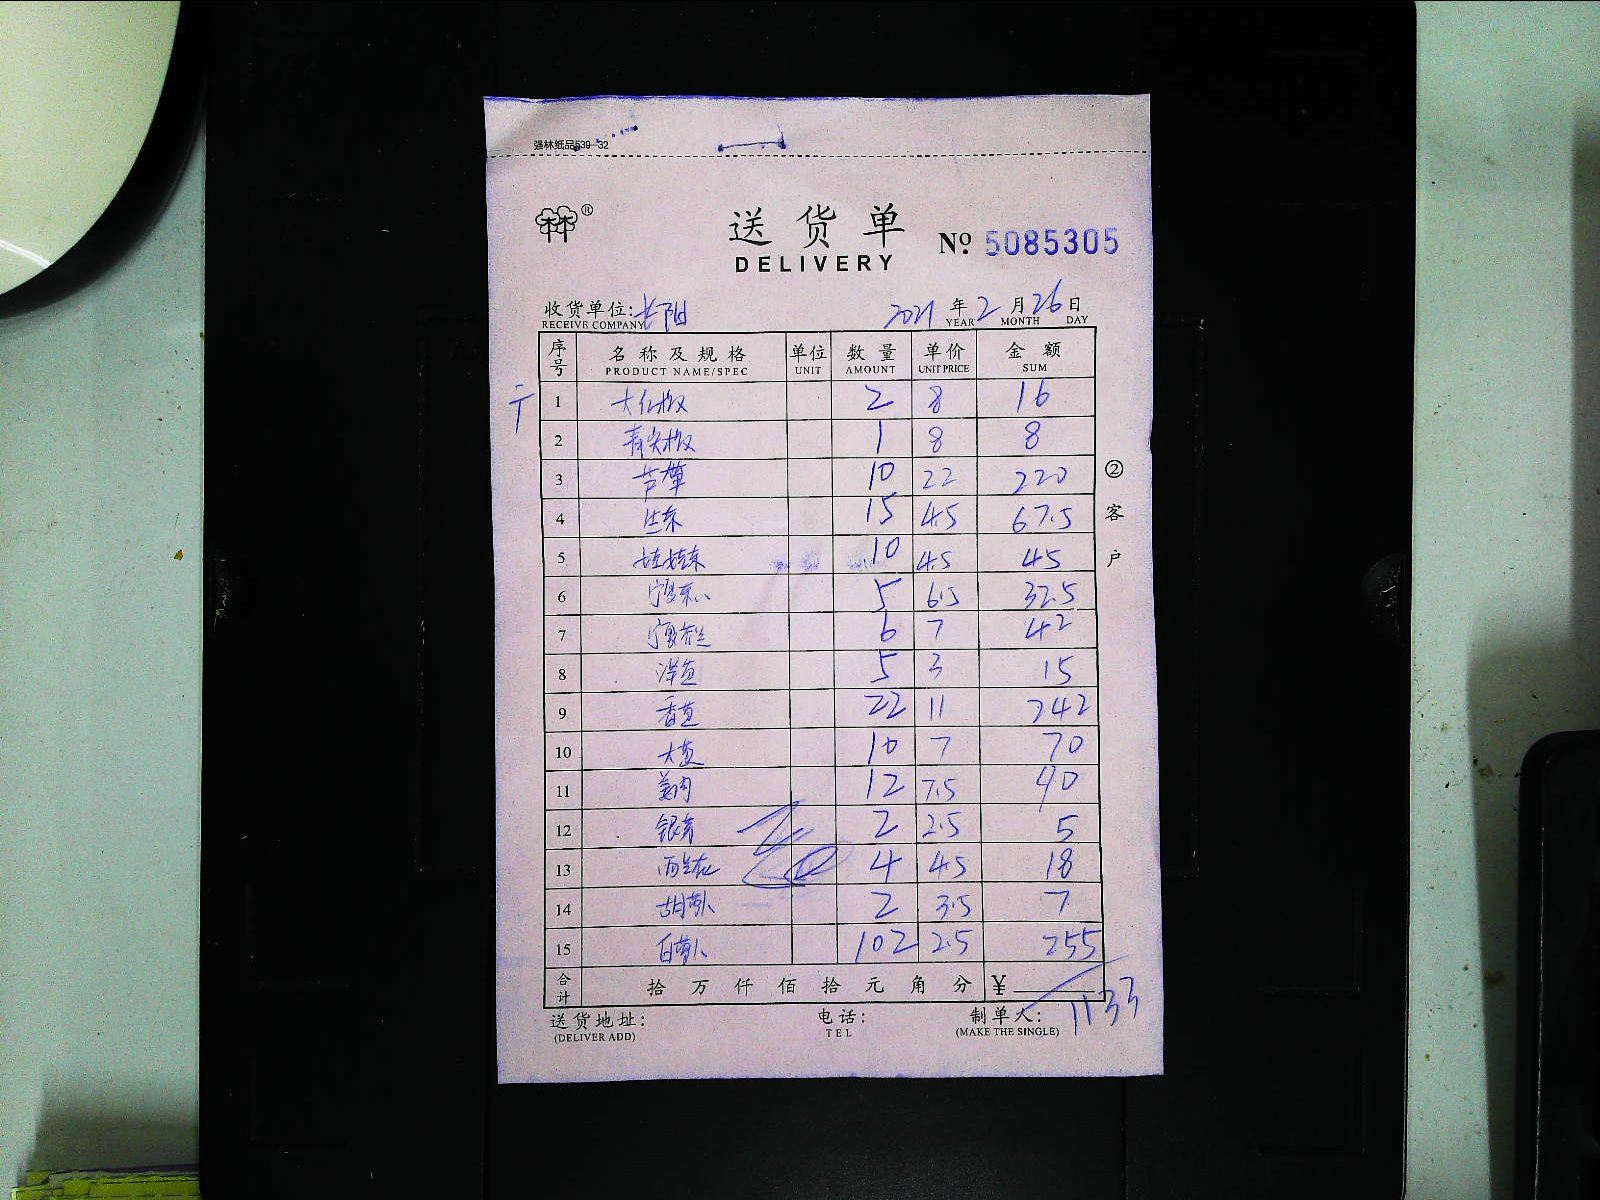 强林纸品539-32
®
送货单
DELIVERY
№ 5085305
收货单位: 长阳 2021 年 2 月 26 日
RECEIVE COMPANY YEAR MONTH DAY
序号 名称及规格 单位 数量 单价 金额
PRODUCT NAME/SPEC UNIT AMOUNT UNIT PRICE SUM
1 2 8 16
2 青尖椒 1 8 8
3 芦 10 22 220
4 15 4.5 67.5
5 10 4.5 45
6 宁 5 6.5 32.5
7 宁夏 6 7 42
8 洋 5 3 15
9 香 22 11 242
10 大 10 7 70
11 12 7.5 90
12 银芽 2 2.5 5
13 西兰花 4 4.5 18
14 胡萝卜 2 3.5 7
15 白萝卜 102 2.5 255
合计 拾 万 仟 佰 拾 元 角 分 ¥ 1133
送货地址: 电话: 制单人:
(DELIVER ADD) TEL (MAKE THE SINGLE)
② 客户